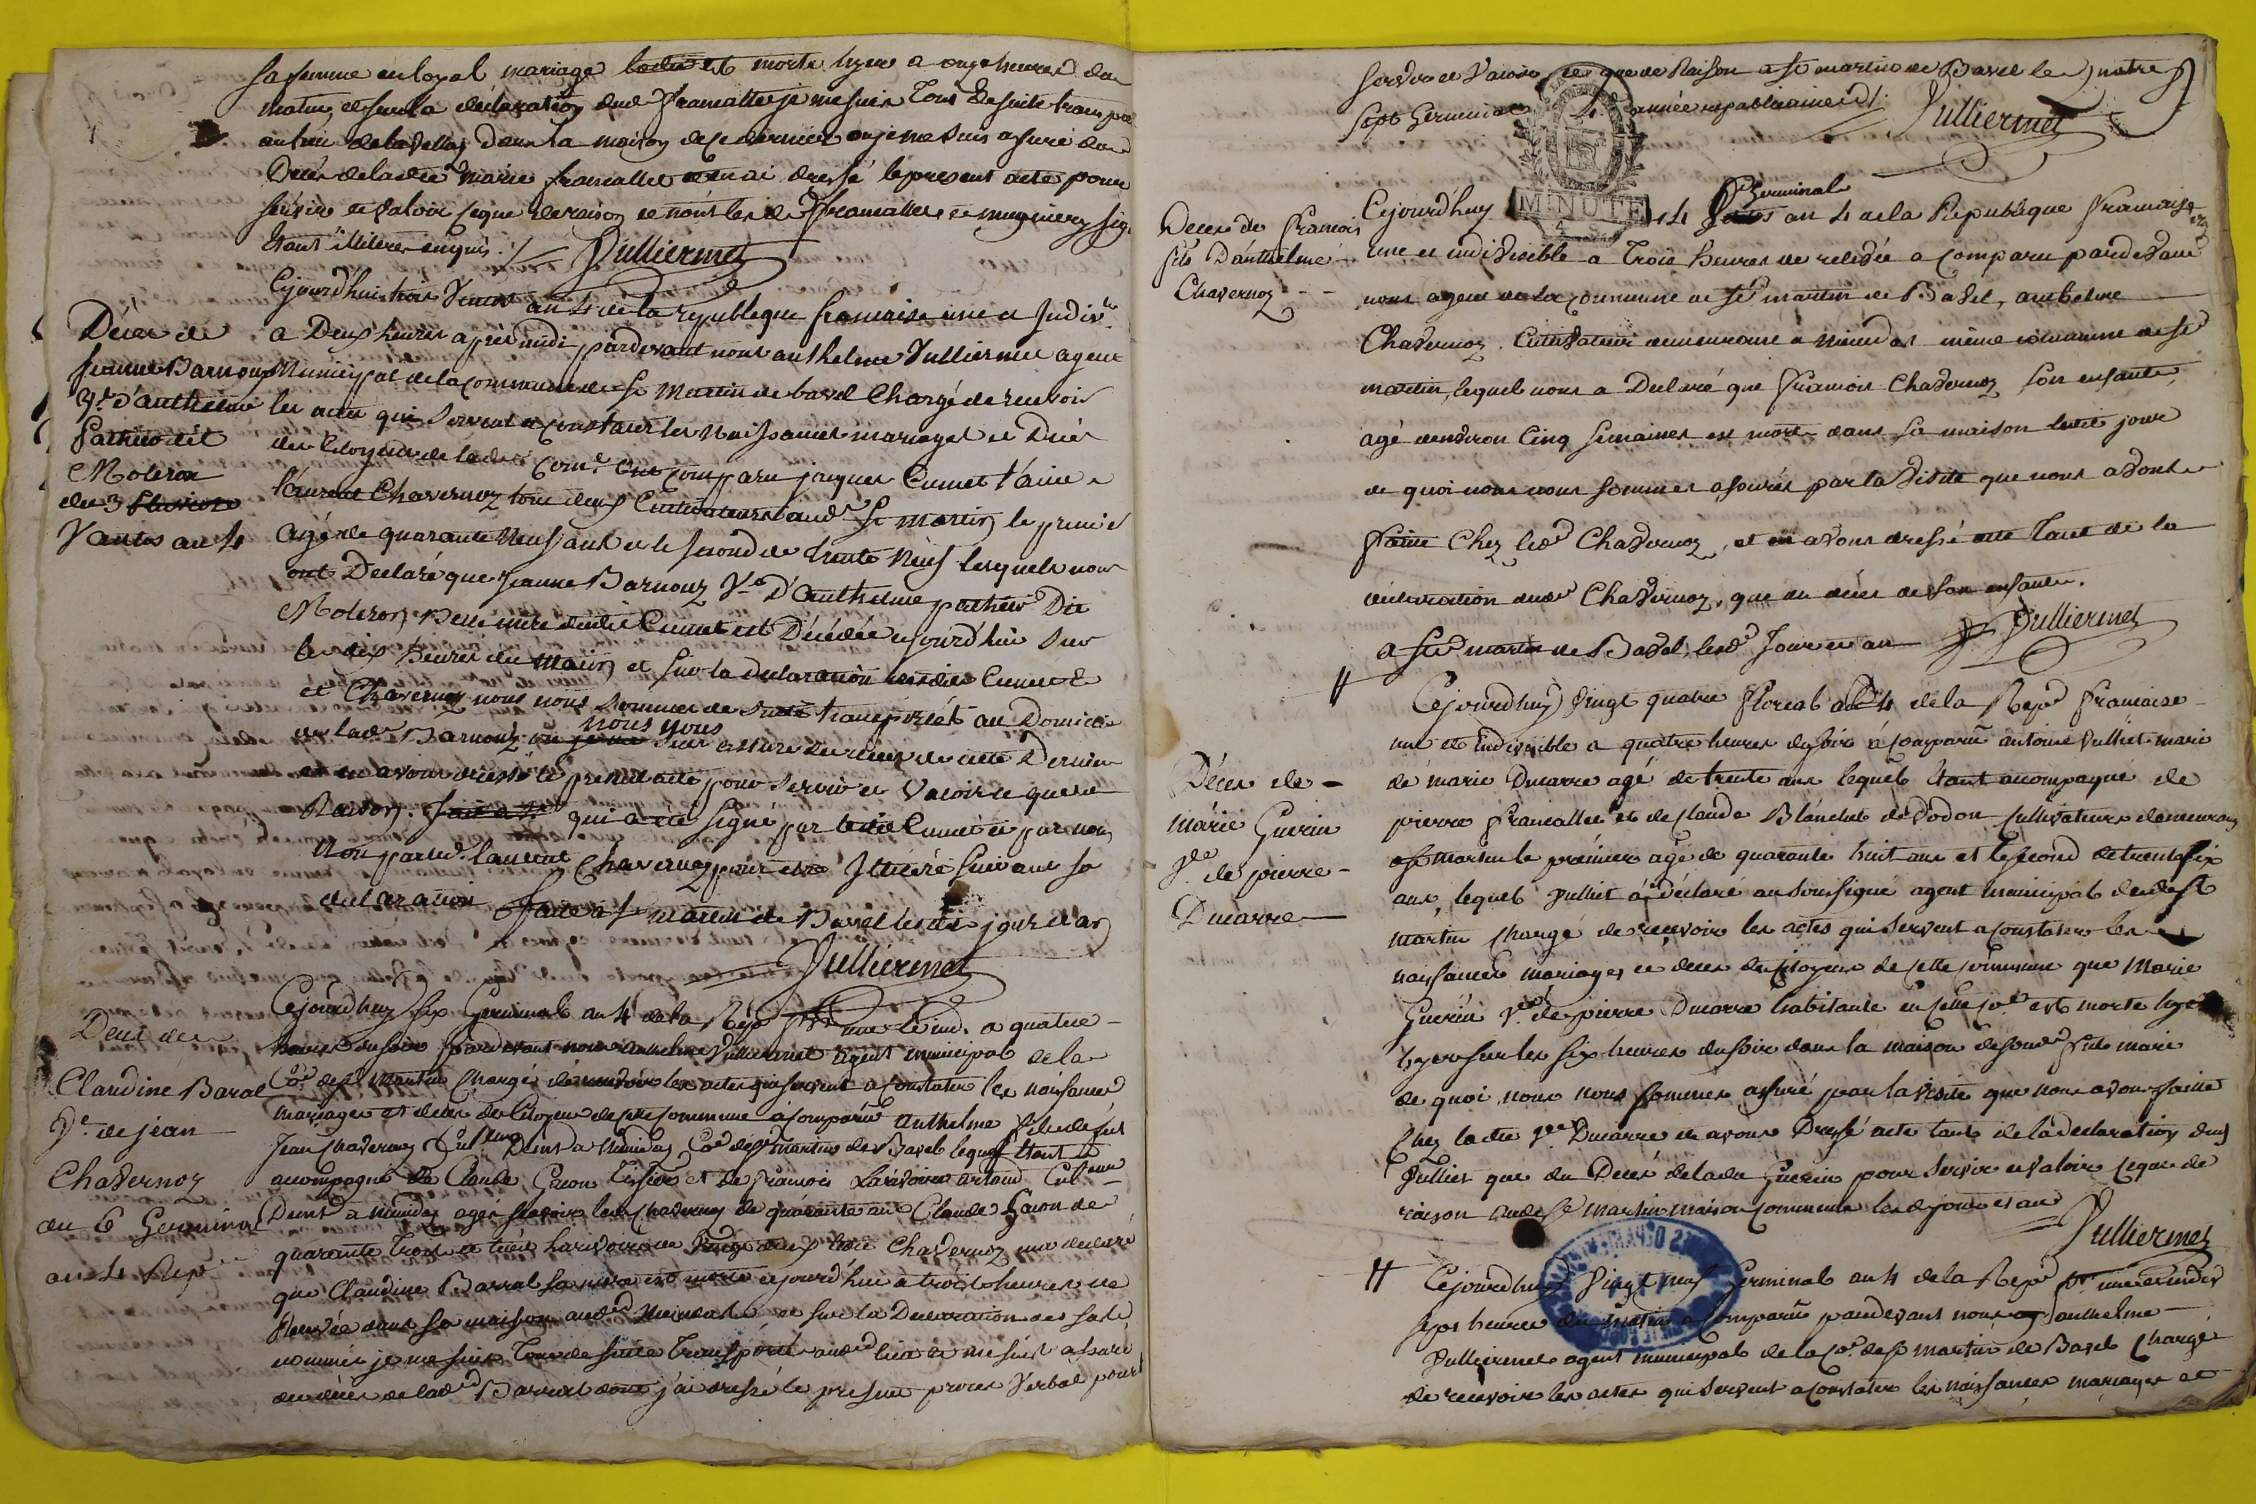 sa femme en loyal mariage est morte hyer a onze heures du
matin, et sur la déclaration dud françallet je me suis tout de suite transporté
au lieu de la vellaz dans la maison de ce dernier ou je me suis assuré du
Décès de ladite marie francallet et en ai dressé le present acte pour
servir et valoir ceque de raison et nont les d francallet et mugnier signé
étant illitérés enquis ./. Vulliermet
Cejourd'hui trois Ventos an 4 de la république francaise une et Indiv.le
Décès de
Jeanne Barnouz
Ve d'anthelme
pathieu dit
Moleron
du 3
Vantos au 4
a Deux heures après midi pardevant nous anthelme Vulliermet agent
Municipal de la commune de St Martin de bavel Chargé de recevoir
les actes qui servent a constater les Naissances mariages et Décès
des Citoyens de lade Come ont comparu jacques Cumet l'ainé
laurent Chavernoz tous deux Cultivateurs aud St Martin le premier
Agé de quarante neuf ans et le second de trente neuf lesquels nous
ont Déclaré que Jeanne Barnouz Ve D'Anthelme pathieu Dit
Moleron Belle mere dudit Cumet est Décédée cejourd'hui sur
les dix heures du matin et sur la declaration desdits Cumet &
et Chavernoz nous nous sommes de suite transportés au Domicile
de lade Barnouz ou nous nous assuré du décès de cette Derniere
et en avons dressé le present acte pour servir et Valoir ce que de
Raison. qui a été signé par ledit Cumet et par nous
Non par led laurent Chavernoz pour etre Illitéré suivant sa
declaration fait a St martin de Bavel lesdits jour et an
Vulliermet
Décès de
Claudine Baral
Ve de jean
Chavernoz
du 6 Germinal
an 4 Rep
Cejourdhuy six Germinal an 4 de la Rep une et ind. a quatre
heures du soir pardevant nous anthelme Vulliermet agent municipal de la
Coe de St Martin chargé de recevoir les actes qui servent a constater les naissances
mariages et décès des Citoyens de cette commune a comparu anthelme fils de feu
Jean Chavernoz Cult Demt a muindas Coe de St Martin de Bavel lequel étant
accompagné de Claude Gacon Tissier et de francois artaud Cult
Demt a muindas agés savoir led Chavernoz de quarante ans Claude Gacon de
quarante trois et ledit de vingt deux ledit Chavernoz ma declaré
que Claudine Barral sa mère est morte cejourd'hui a trois heures de
relevée dans sa maison aud Muindas et sur la Declaration des sus
nommés je me suis tout de suite transporté aud lieu et me suis assuré
du décès de lad Barral dont j'ai dressé le present proces Verbal pour
servir et Valoir ce que de Raison a St martin de Bavel le
Sept Germinal 4e année republicaine Vulliermet
MINUTE
Deces de francois
fils D'anthelme
Chavernoz
Germinal
Cejourd'huy 14 an 4 de la Republique francaise
une et indivisible a trois heures de relevée a comparu pardevant
nous agent de la commune de St martin de Bavel, anthelme
Chavernoz Cultivateur demeurant a Muindas même commune de St
martin, lequel nous a Declaré que francois Chavernoz son enfant
agé denviron Cinq semaines est mort dans sa maison ledit jour
de quoi nous nous sommes assurés par la Visite que nous avons
faite Chez led Chavernoz, et en avons dressé acte tant de la
déclaration dud Chavernoz, que du décès de son enfant.
a St martin de Bavel, led Jour et an Vulliermet
Décès de
Marie Guerin
Ve de pierre
Ducarre
Cejourdhuy Vingt quatre floreal an 4 de la Rep francaise
une et indivisible a quatre heures du soir a comparu antoine Vulliet mari
de marie Ducarre agé de trente ans lequel étant accompagné de
pierre francallet et de Claude Blanchet de Vodon cultivateurs demeurans
a St Martin le premier agé de quarante huit ans et le second de trente six
ans, lequel Vulliet a déclaré au soussigné agent municipal dud St
martin chargé de recevoir les actes qui servent a constater les
naissances mariages et deces des Citoyens de cette commune que Marie
Guerin Ve de pierre Ducarre habitante en cette Coe est morte hyer
hyer sur les six heures du soir dans la maison de sond mari
de quoi nous nous sommes assuré par la visite que nous avons faitte
Chez ladte Ve Ducarre et avons Dressé acte tant de la declaration dud
Vulliet que du Décès de lade Guerin pour servir et valoir ceque de
raison aud St Martin maison commune les d jour et an
Vulliermet
Cejourdhuy Vingt neuf Germinal an 4 de la Rep fr une et indiv
sept heures du matin a comparu pardevant nous anthelme
Vulliermet agent municipal de la Coe de St martin de Bavel chargé
de recevoir les actes qui servent a constater les naissances mariages et